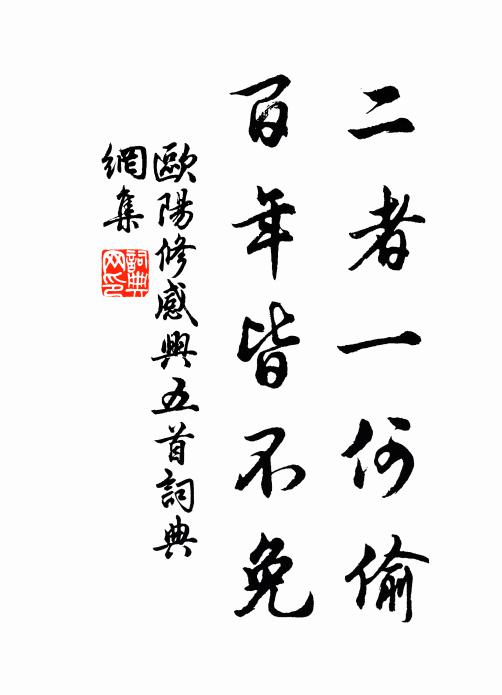 二者一何偷
百年皆不免
歐陽修感興五首詞典
網集
詞典
网印